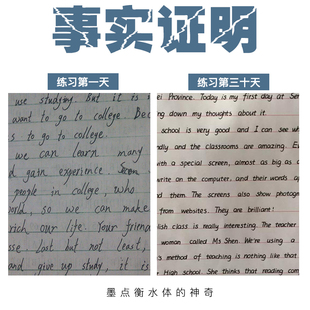 事实证明
练习第一天
练习第三十天
use studying. But it is
want to go to college. Bec
s to go to college.
we can learn many
d gain experience.
people in college, who
orld, so we can make
rich our life. Your friend
sse. Last but not least,
and give up study, it is
ei Province. Today is my first day at Sen
ing down my thoughts about it.
school is very good and I can see wh
ndly and the classrooms are amazing. E
with a special screen, almost as big as
write on the computer, and their words ap
d them. The screens also show photograp
from websites. They are brilliant!
lish class is really interesting. The teacher
woman called Ms Shen. We're using a
s method of teaching is nothing like that
r High school. She thinks that reading com
墨点衡水体的神奇